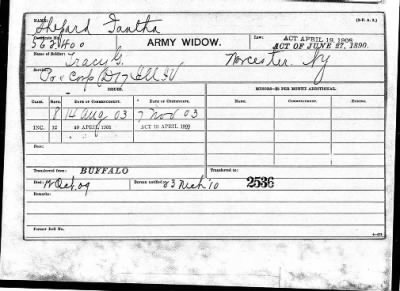 NAME: (D.-P. A. B.)
Shepard Taatha
Certificate No. Law: ACT APRIL 19, 1908
563,400 ARMY WIDOW. ACT OF JUNE 27, 1890.
Name of Soldier: Tracy G. Worcester Ny
Service: Co. Corp D 17 Ill
ISSUE. MINORS—$2 PER MONTH ADDITIONAL.
CLASS. RATE. DATE OF COMMENCEMENT. DATE OF CERTIFICATE. COMMENCING. ENDING.
8 14 Aug 03 7 Nov 03
INC. 12 19 APRIL, 1908 ACT 19 APRIL, 1908
Fee:
Transferred from: BUFFALO
Died Bureau notified 23 Mch '10 2536
Remarks:
Former Roll No.